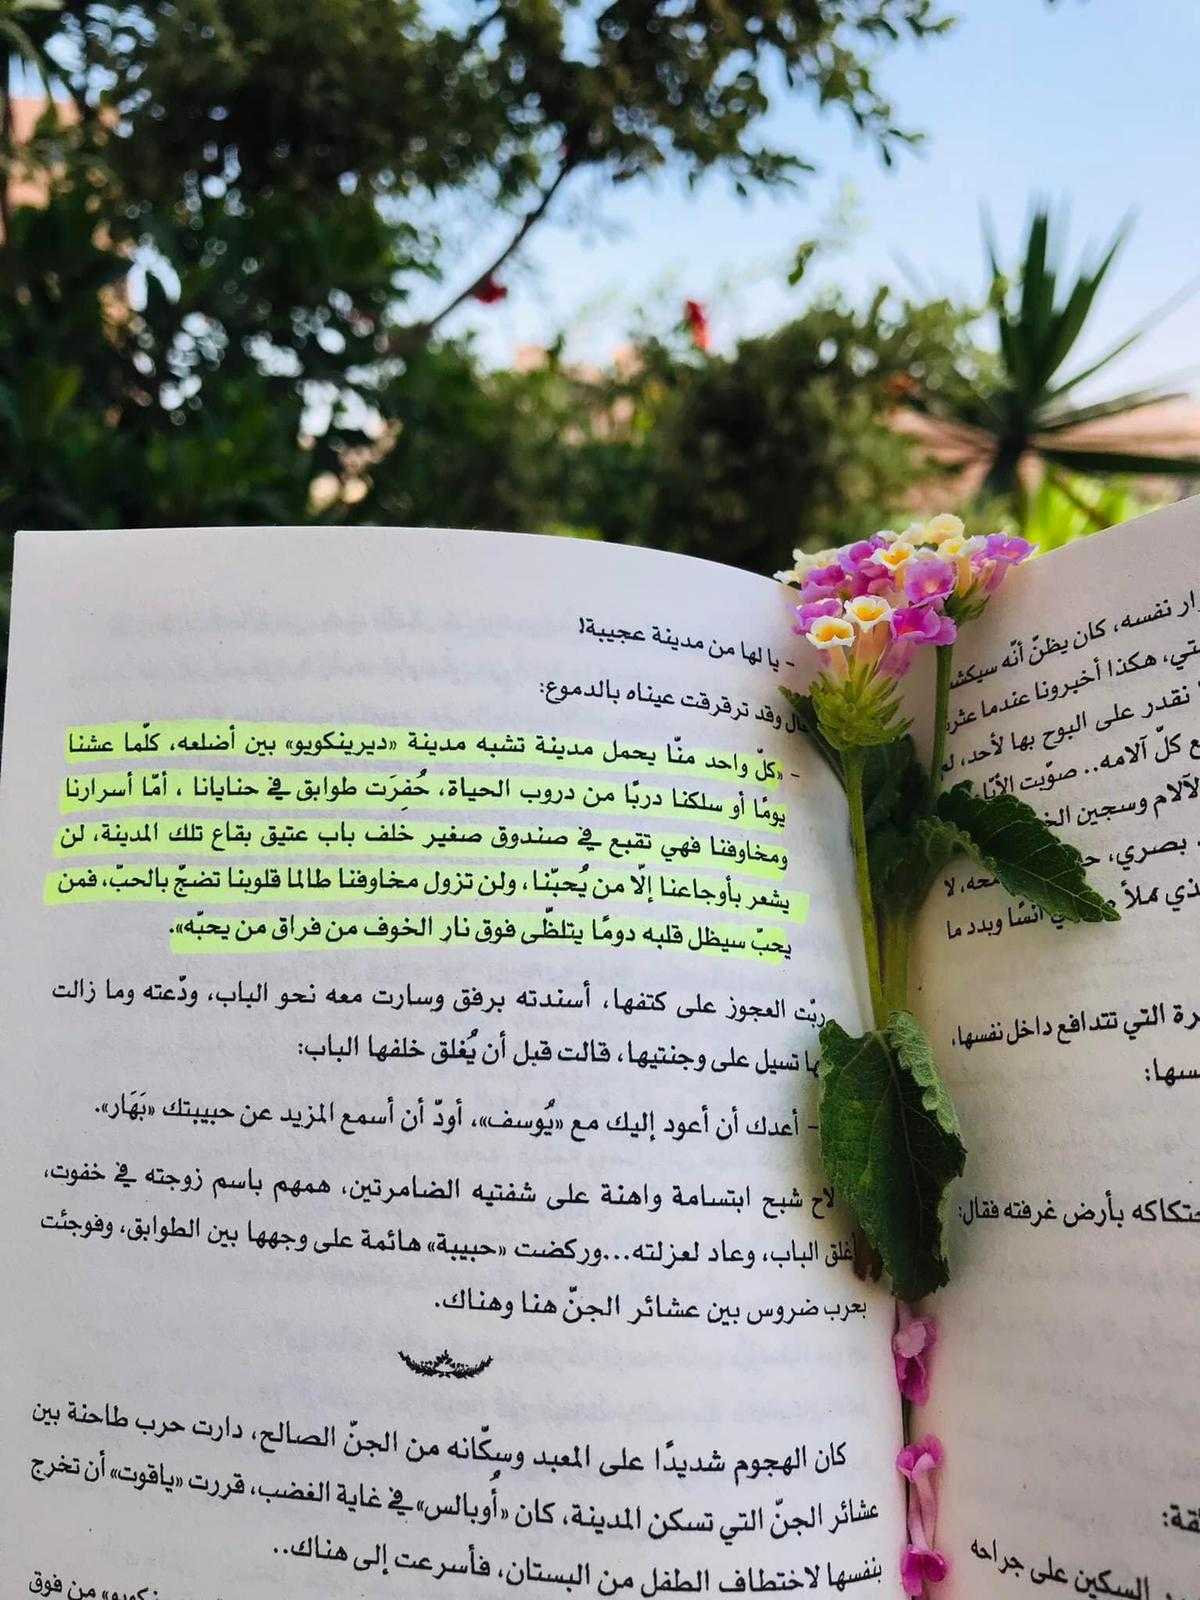 - يا لها من مدينة عجيبة!
قال وقد ترقرقت عيناه بالدموع:
- «كلّ واحد منّا يحمل مدينة تشبه مدينة «ديرينكويو» بين أضلعه، كلّما عشنا
يومًا أو سلكنا دربًا من دروب الحياة، حُفِرَت طوابق في حنايانا ، أمّا أسرارنا
ومخاوفنا فهي تقبع في صندوق صغير خلف باب عتيق بقاع تلك المدينة، لن
يشعر بأوجاعنا إلّا من يُحبّنا، ولن تزول مخاوفنا طالما قلوبنا تضجّ بالحبّ، فمن
يحبّ سيظل قلبه دومًا يتلظّى فوق نار الخوف من فراق من يحبّه».
ربّت العجوز على كتفها، أسندته برفق وسارت معه نحو الباب، ودّعته وما زالت
تسيل على وجنتيها، قالت قبل أن يُغلق خلفها الباب:
- أعدك أن أعود إليك مع «يُوسف»، أودّ أن أسمع المزيد عن حبيبتك «بَهَار».
لاح شبح ابتسامة واهنة على شفتيه الضامرتين، همهم باسم زوجته في خفوت،
أغلق الباب، وعاد لعزلته...وركضت «حبيبة» هائمة على وجهها بين الطوابق، وفوجئت
بحرب ضروس بين عشائر الجنّ هنا وهناك.
كان الهجوم شديدًا على المعبد وسكّانه من الجنّ الصالح، دارت حرب طاحنة بين
عشائر الجنّ التي تسكن المدينة، كان «أُوبالس» في غاية الغضب، قررت «ياقوت» أن تخرج
بنفسها لاختطاف الطفل من البستان، فأسرعت إلى هناك..
من فوق
نفسه، كان يظنّ أنّه
هكذا أخبرونا عندما
نقدر على البوح بها لأحد،
كلّ آلامه.. صوّبت
الآلام وسجين
بصري،
لا
ملأ
أنسًا وبدد ما
التي تتدافع داخل نفسها،
احتكاكه بأرض غرفته فقال:
السكين على جراحه